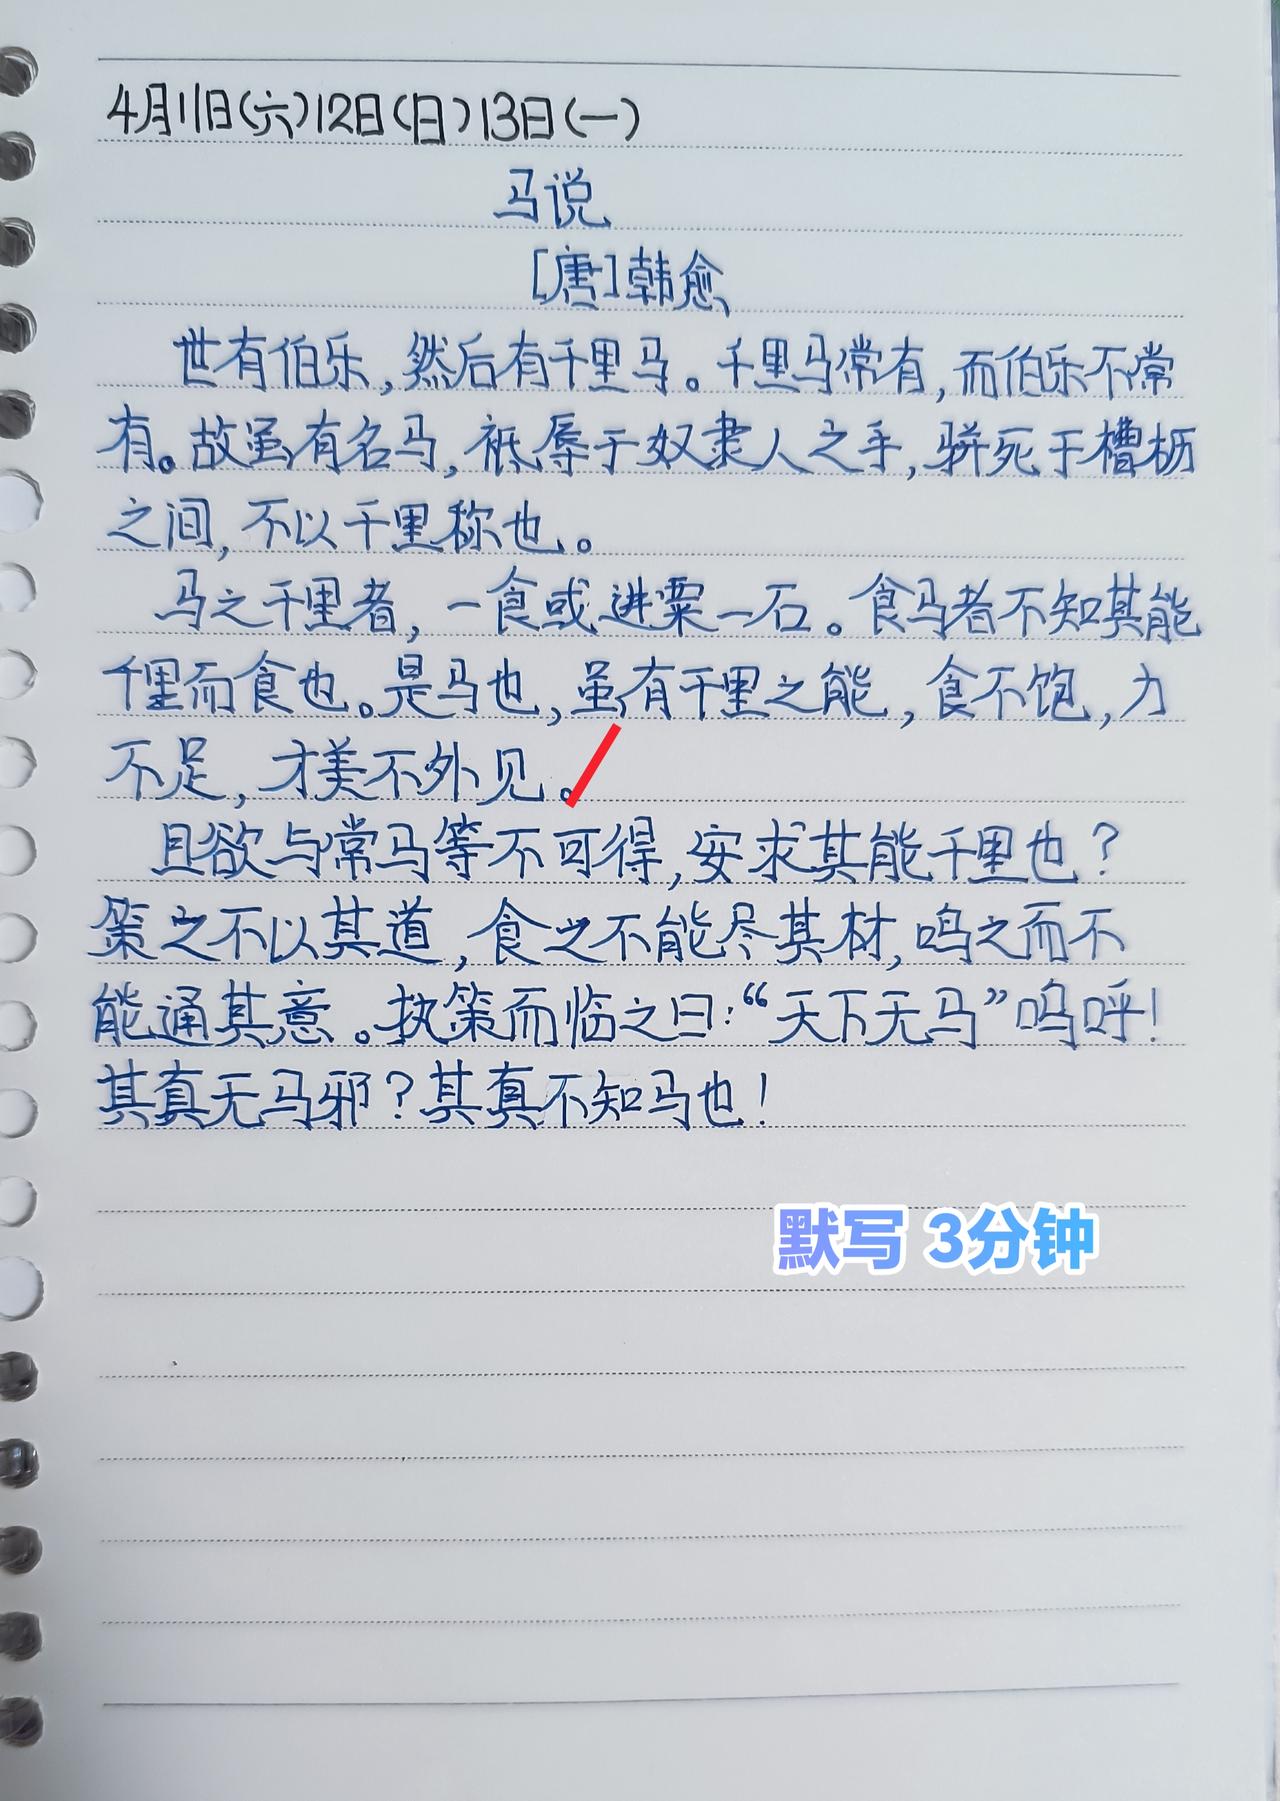 4月11日(六)12日(日)13日(一)
马说
[唐]韩愈
世有伯乐,然后有千里马。千里马常有,而伯乐不常
有。故虽有名马,祇辱于奴隶人之手,骈死于槽枥
之间,不以千里称也。
马之千里者,一食或进粟一石。食马者不知其能
千里而食也。是马也,虽有千里之能,食不饱,力
不足,才美不外见。
且欲与常马等不可得,安求其能千里也?
策之不以其道,食之不能尽其材,鸣之而不
能通其意。执策而临之曰:“天下无马”呜呼!
其真无马邪?其真不知马也!
默写 3分钟